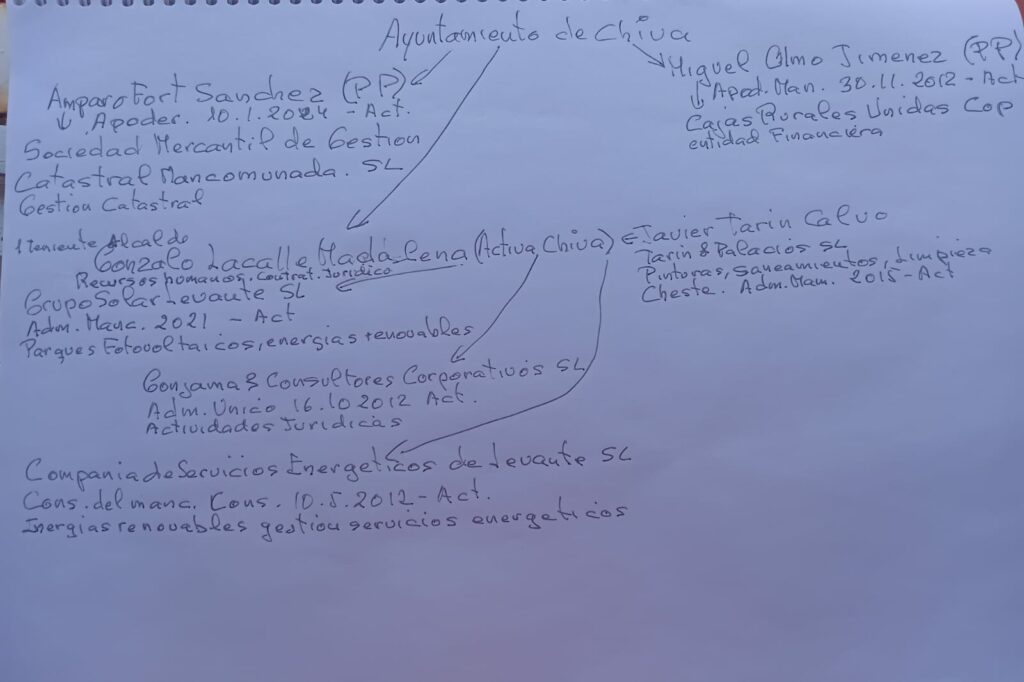 Ayuntamiento de Chiva
Amparo Fort Sanchez (PP)
Apoder. 10.1.2024 - Act.
Sociedad Mercantil de Gestion
Catastral Mancomunada. SL
Gestion Catastral
Miguel Olmo Jimenez (PP)
Apod. Man. 30.11.2012 - Act
Cajas Rurales Unidas Cop
entidad Financiera
1 Teniente Alcalde
Gonzalo Lacalle Madálena (Activa Chiva)
Recursos humanos, Contrat. Juridico
Grupo Solar Levante SL
Adm. Manc. 2021 - Act
Parques Fotovoltaicos, energias renovables
Javier Tarin Calvo
Tarin & Palacios SL
Pintoras, Saneamientos, Limpieza
Cheste. Adm. Mam. 2015 - Act
Gonjama 3 Consultores Corporativos SL
Adm. Unico 16.10 2012 Act.
Actividados Juridicas
Compania de Servicios Energeticos de Levante SL
Cons. del manc. Cons. 10.5.2012 - Act.
Energias renovables gestion servicios energeticos